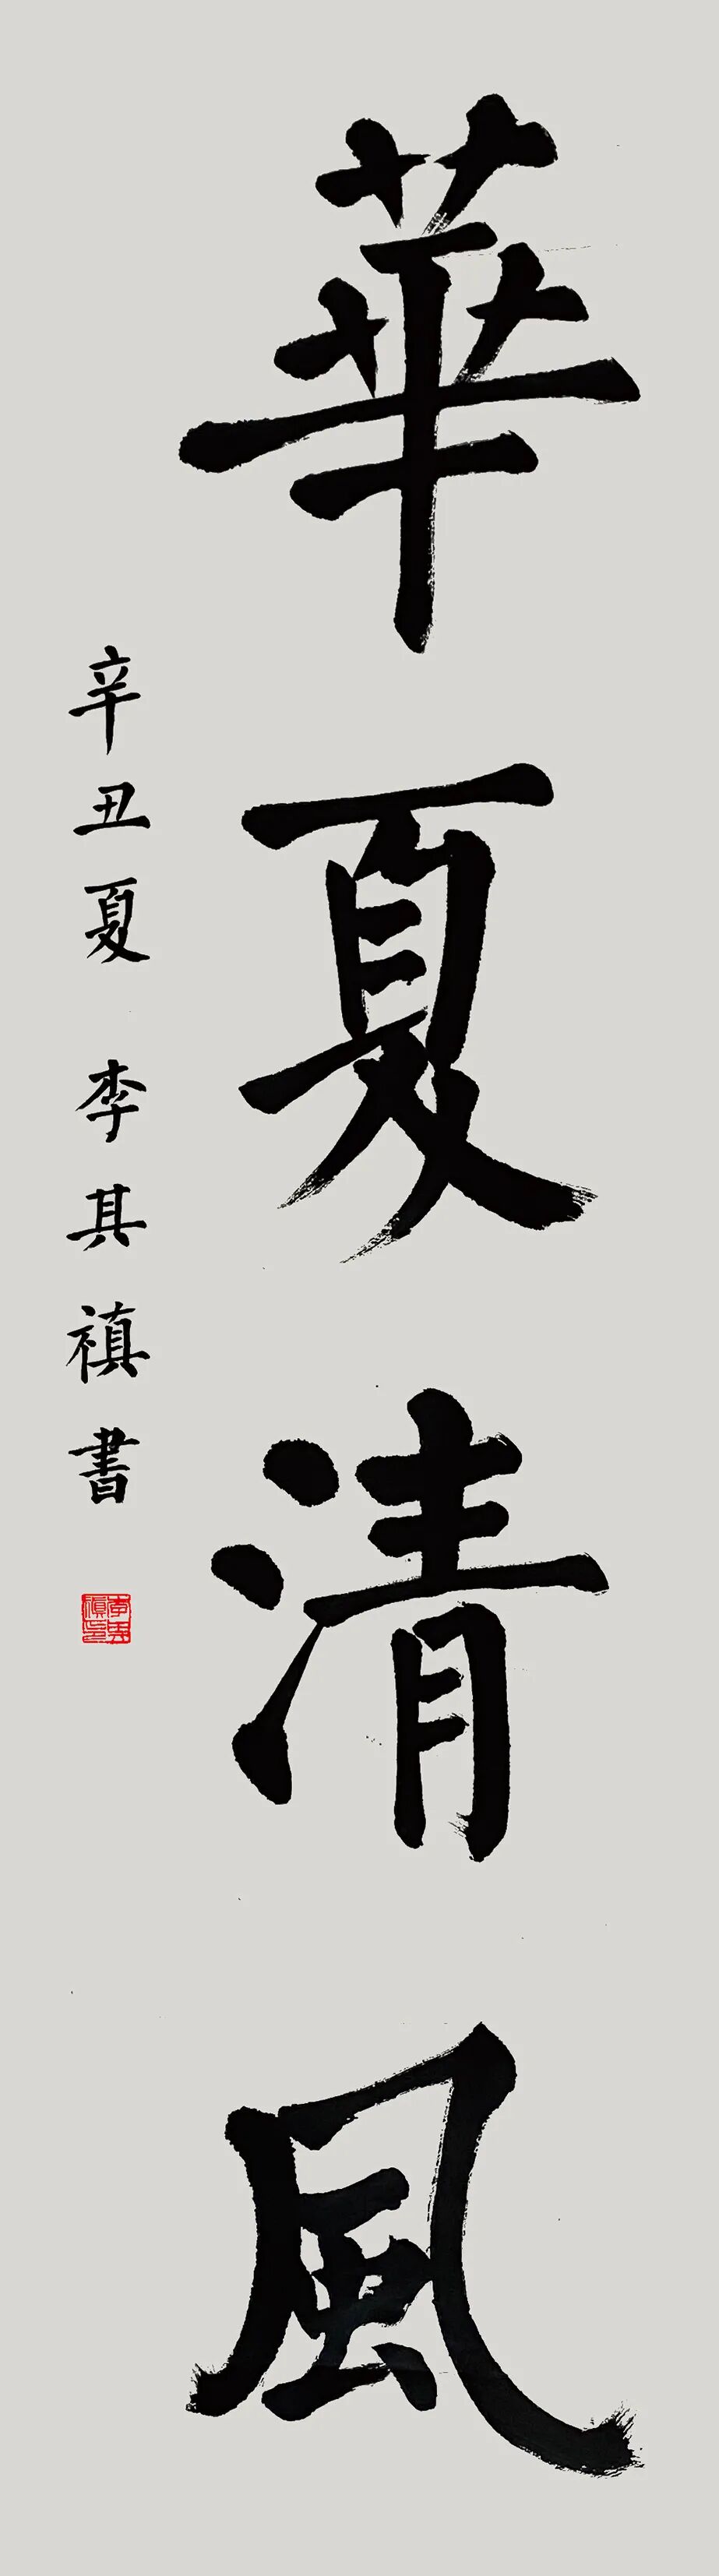 華夏清風
辛丑夏 李其禛書